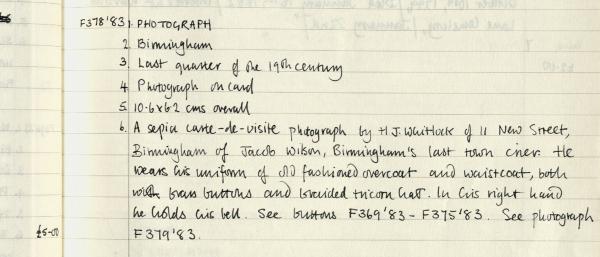 F378'83 1. PHOTOGRAPH
2. Birmingham
3. Last quarter of the 19th century
4. Photograph on card
5. 10.6x6.2 cms overall
6. A sepia carte-de-visite photograph by H.J. Whitlock of 11 New Street,
Birmingham of Jacob Wilson, Birmingham's last town crier. He
wears his uniform of old fashioned overcoat and waistcoat, both
with brass buttons and braided tricorn hat. In his right hand
he holds his bell. See buttons F369'83 - F375'83. See photograph
£5-00 F379'83.